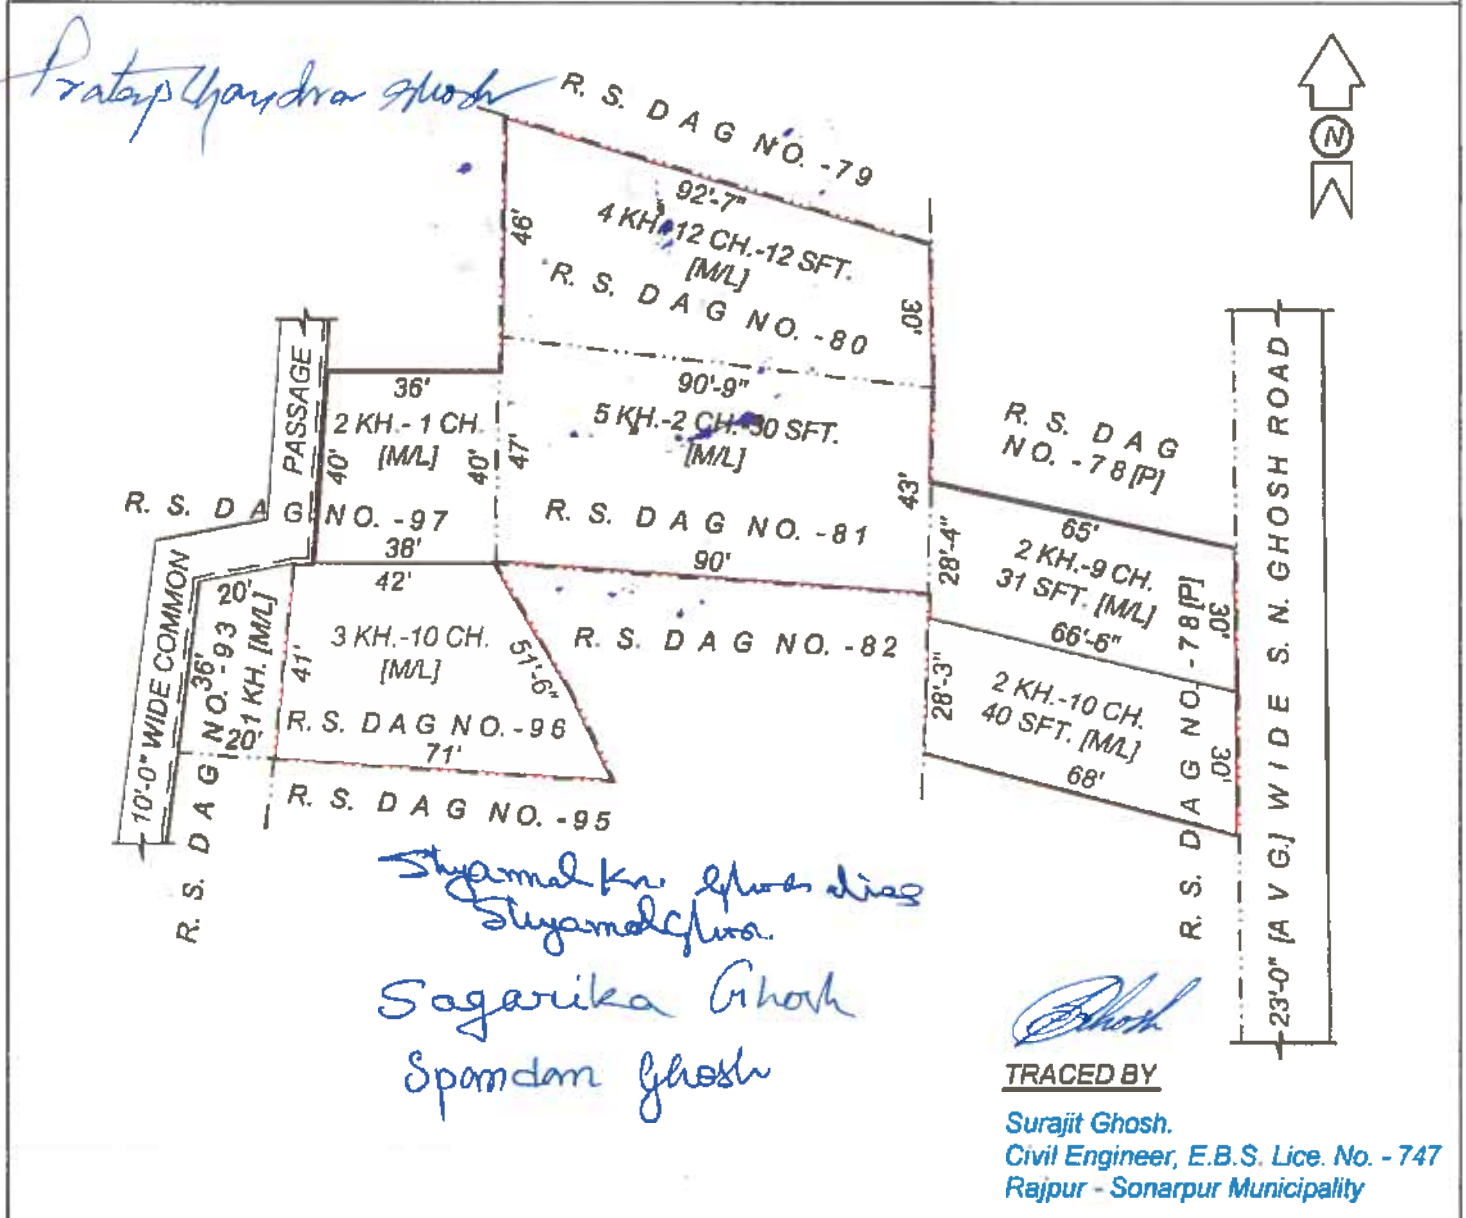 Pratap Chandra Ghosh
R. S. DAG NO. -79
N
92'-7"
4 KH.-12 CH.-12 SFT.
[M/L]
46'
30'
R. S. DAG NO. -80
90'-9"
5 KH.-2 CH.-30 SFT.
[M/L]
47'
43'
R. S. DAG NO. -81
90'
36'
2 KH.- 1 CH.
[M/L]
40'
40'
R. S. DAG NO. -97
38'
PASSAGE
10'-0" WIDE COMMON
20'
36'
1 KH. [M/L]
20'
R. S. DAG NO. -93
42'
3 KH.-10 CH.
[M/L]
41'
51'-6"
R. S. DAG NO. -96
71'
R. S. DAG NO. -95
R. S. DAG NO. -82
R. S. DAG
NO. -78 [P]
65'
2 KH.-9 CH.
31 SFT. [M/L]
28'-4"
30'
66'-6"
2 KH.-10 CH.
40 SFT. [M/L]
28'-3"
30'
68'
R. S. DAG NO. -78 [P]
23'-0" [AVG.] WIDE S. N. GHOSH ROAD
Shyamal Kr. Ghosh alias
Shyamal Ghosh
Sagarika Ghosh
Spandan Ghosh
Ghosh
TRACED BY
Surajit Ghosh.
Civil Engineer, E.B.S. Lice. No. - 747
Rajpur - Sonarpur Municipality